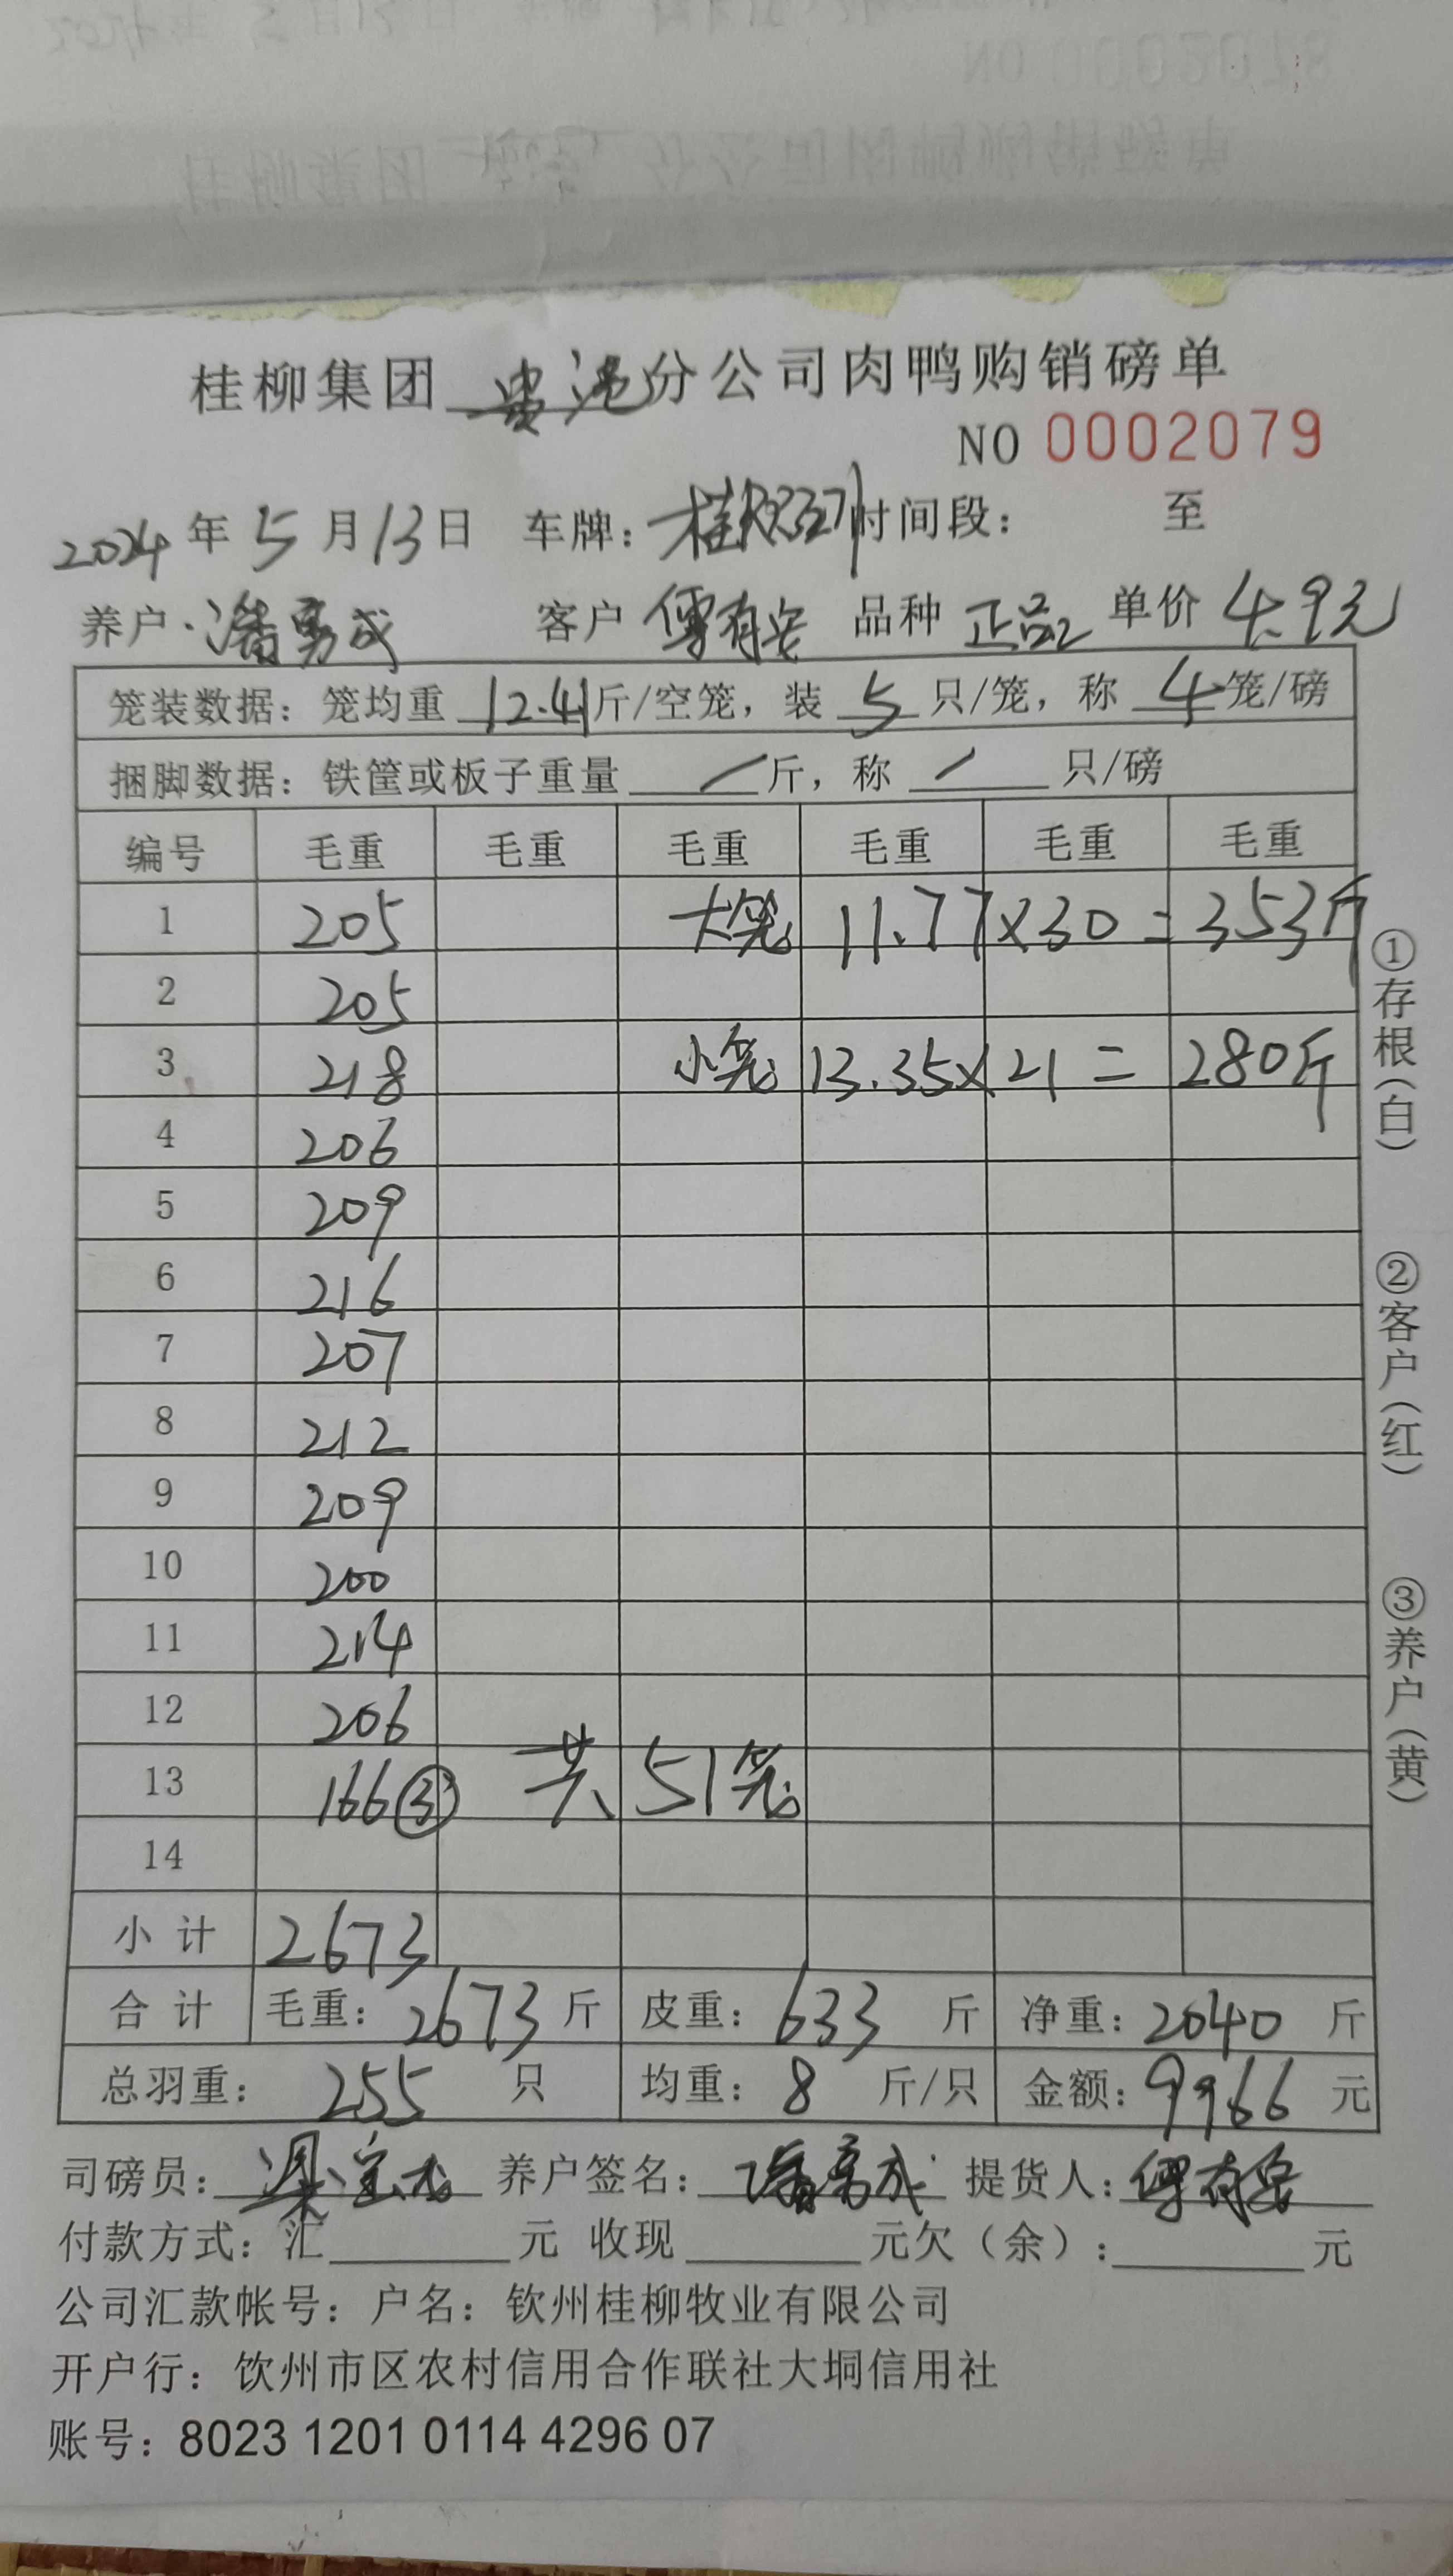 桂柳集团 贵港 分公司肉鸭购销磅单
NO 0002079
2024 年 5 月 13 日 车牌: 时间段: 至
养户 潘勇成 客户 傅有安 品种 正品 单价 4.9元
笼装数据: 笼均重 12.41 斤/空笼, 装 5 只/笼, 称 4 笼/磅
捆脚数据: 铁筐或板子重量 / 斤, 称 / 只/磅
编号 毛重 毛重 毛重 毛重 毛重 毛重
1 205 大笼 11.77×30=353斤
2 205
3 218 小笼 13.35×21=280斤
4 206
5 209
6 216
7 207
8 212
9 209
10 200
11 214
12 206
13 166③ 共51笼
14
小计 2673
合计 毛重: 2673 斤 皮重: 633 斤 净重: 2040 斤
总羽重: 255 只 均重: 8 斤/只 金额: 9966 元
司磅员: 养户签名: 潘勇成 提货人: 傅有安
付款方式: 汇 元 收现 元欠(余): 元
公司汇款帐号: 户名: 钦州桂柳牧业有限公司
开户行: 钦州市区农村信用合作联社大垌信用社
账号: 8023 1201 0114 4296 07
①存根(白)
②客户(红)
③养户(黄)